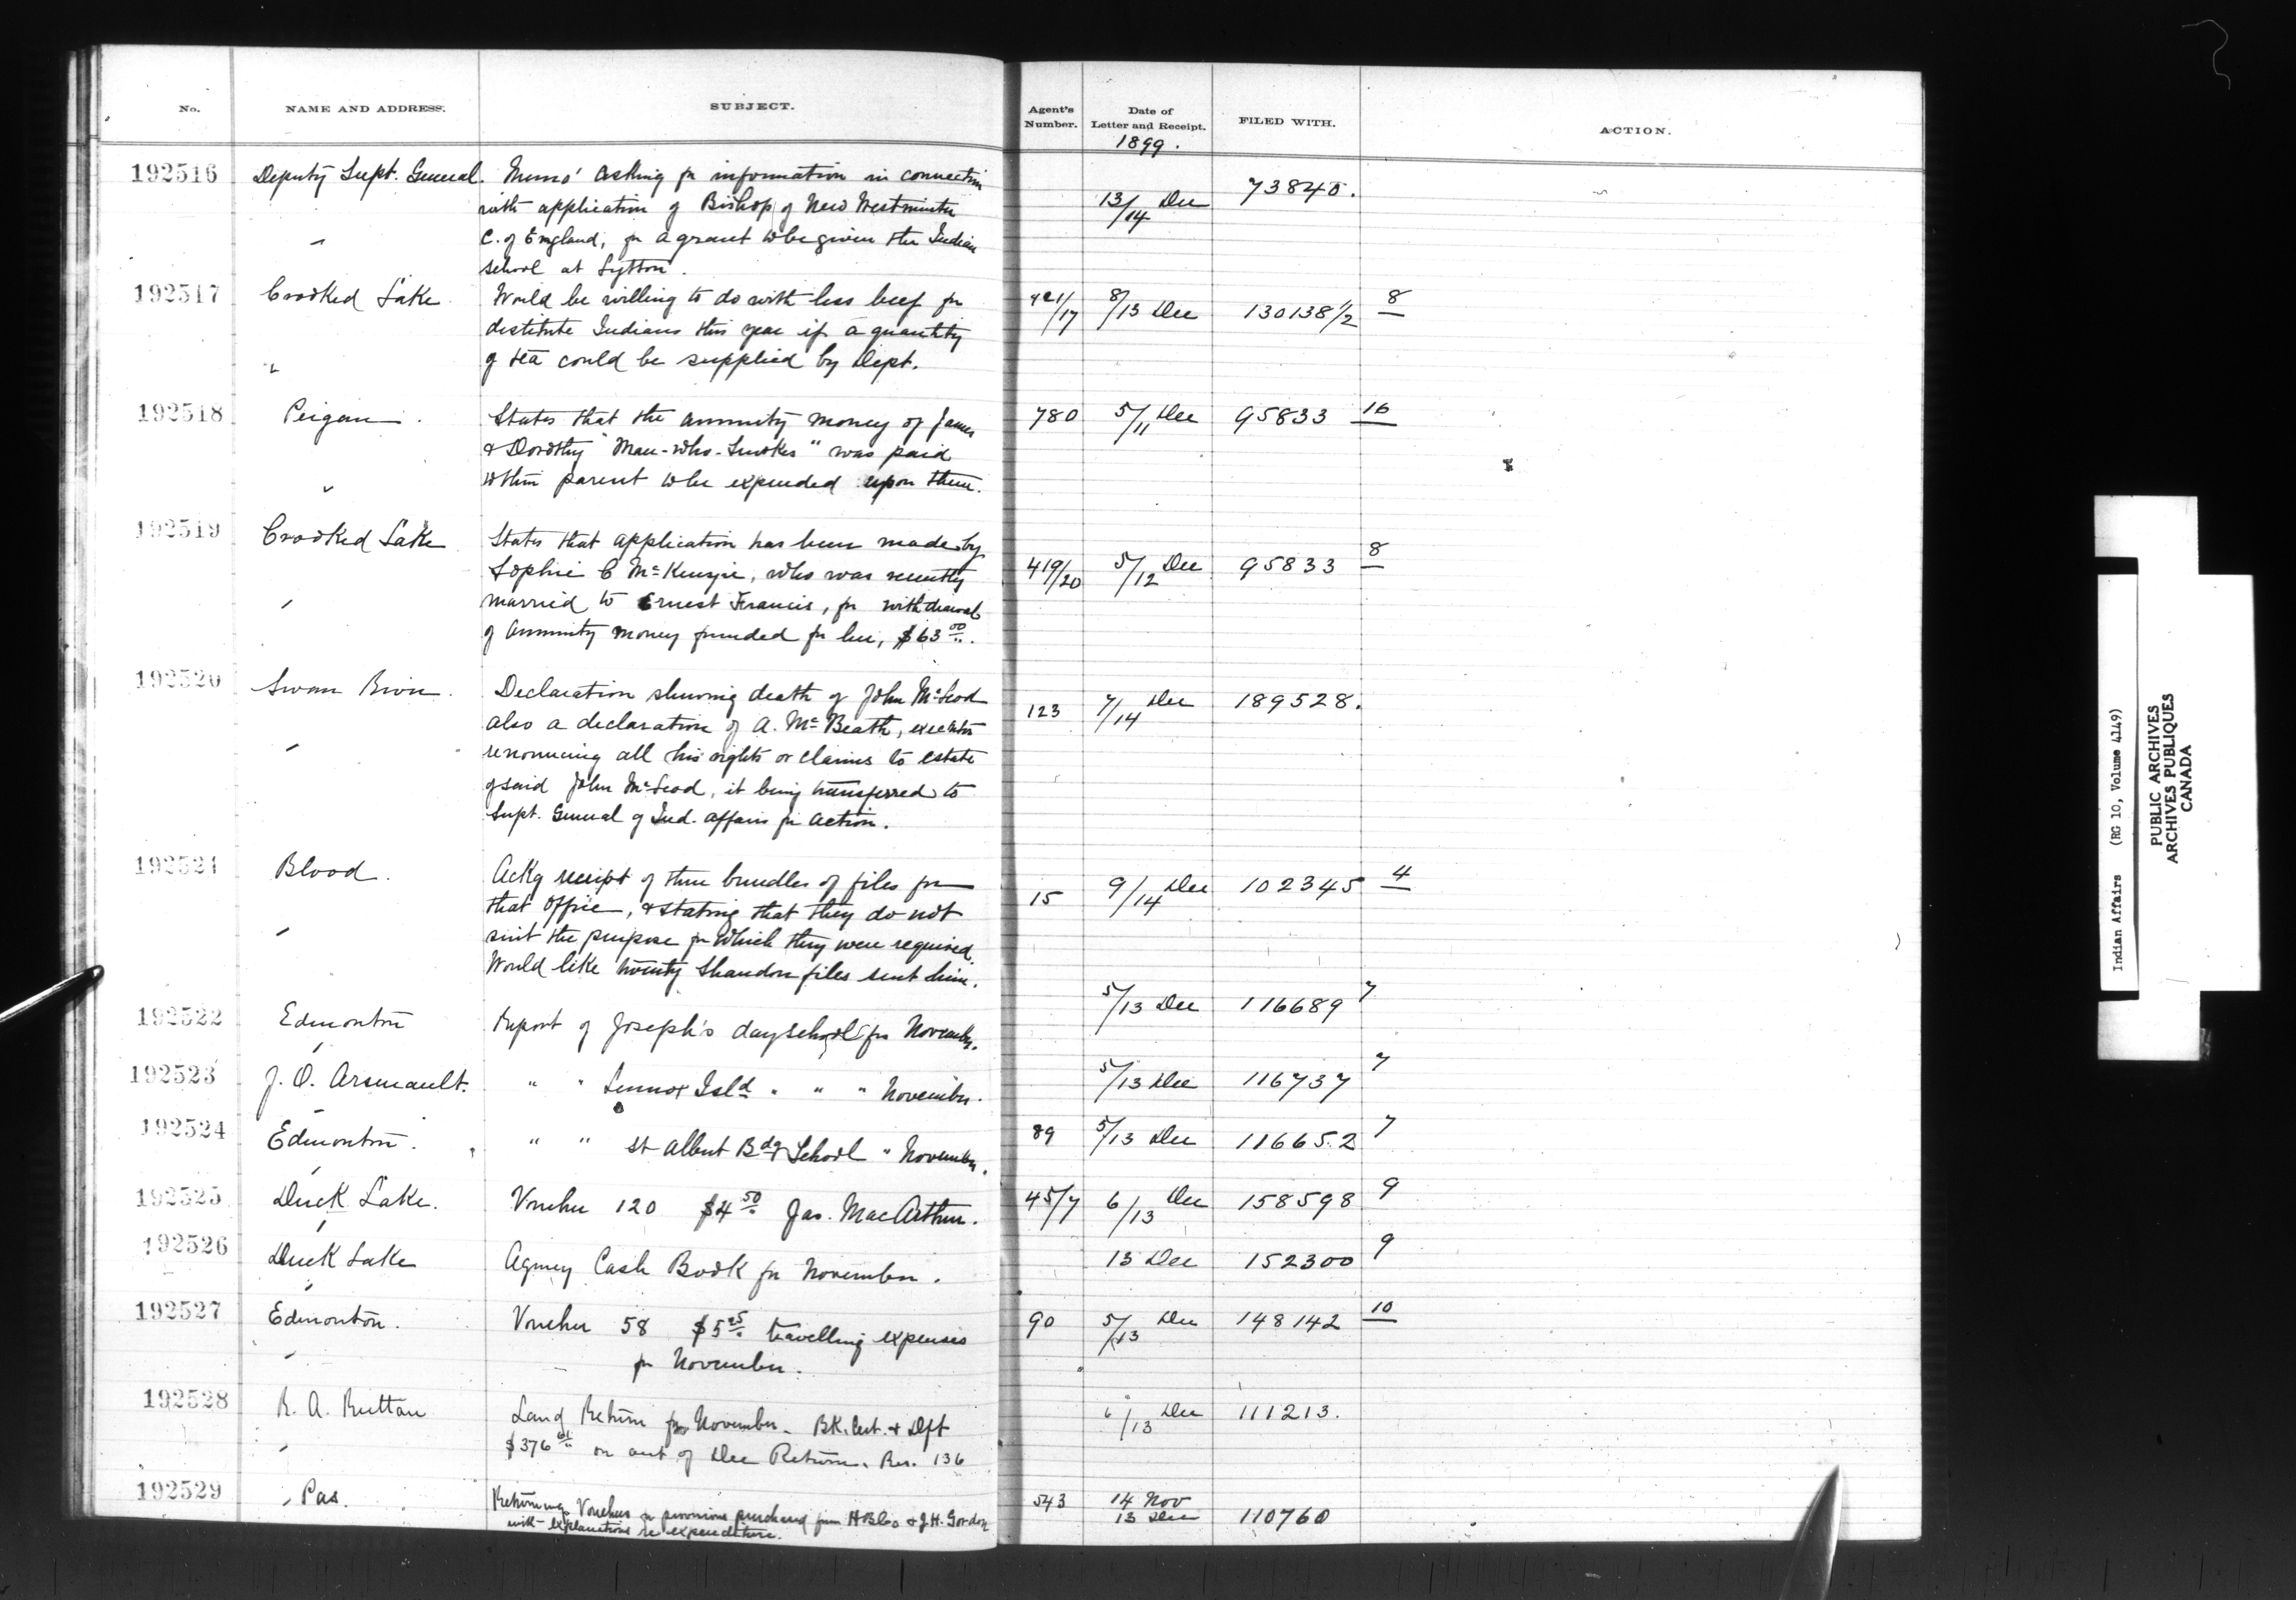 No. NAME AND ADDRESS. SUBJECT. Agent's Number. Date of Letter and Receipt. FILED WITH. ACTION.
1899.
192516 Deputy Supt. General. Memo' asking for information in connection 13/14 Dec 73840.
with application of Bishop of New Westminster
" C. of England, for a grant to be given the Indian
school at Lytton.
192517 Crooked Lake Would be willing to do with less beef for 421/17 8/13 Dec 130138 1/2 8
destitute Indians this year if a quantity
" of tea could be supplied by Dept.
192518 Peigan. States that the annuity money of James 780 5/11 Dec 95833 16
& Dorothy "Man-who-Smokes" was paid
" to their parent to be expended upon them.
192519 Crooked Lake States that application has been made by
Sophie C McKenzie, who was recently 419/20 5/12 Dec 95833 8
" married to Ernest Francis, for withdrawal
of annuity money funded for her, $63 00.
192520 Swan River. Declaration shewing death of John McLeod 123 7/14 Dec 189528.
also a declaration of A. McBeath, executor
" renouncing all his rights or claims to estate
of said John McLeod, it being transferred to
Supt. General of Ind. affairs for action.
192521 Blood. Ackg receipt of three bundles of files for 15 9/14 Dec 102345 4
that office, & stating that they do not
" suit the purpose for which they were required.
Would like twenty Shandon files sent him.
192522 Edmonton Report of Joseph's day school for November. 5/13 Dec 116689 7
192523 J. O. Arsenault. " " Lennox Isld " " " November. 5/13 Dec 116737 7
192524 Edmonton. " " St Albert Bdg School " November. 89 5/13 Dec 116652 7
192525 Duck Lake. Voucher 120 $4 50 Jas. MacArthur. 45/7 6/13 Dec 158598 9
192526 Duck Lake Agency Cash Book for November. 13 Dec 152300 9
192527 Edmonton. Voucher 58 $5 travelling expenses 90 5/13 Dec 148142 10
" for November.
192528 R. A. Ruttan Land Return for November. BK. Cert. & Dft 6/13 Dec 111213.
" $376 on acct of Dec Return. Rec. 136
192529 Pas. Returning Vouchers for provisions purchased from H B Co & J. H. Gordon 543 14 Nov
with explanations re expenditure. 13 Dec 110760
Indian Affairs (RG 10, Volume 4149)
PUBLIC ARCHIVES
ARCHIVES PUBLIQUES
CANADA